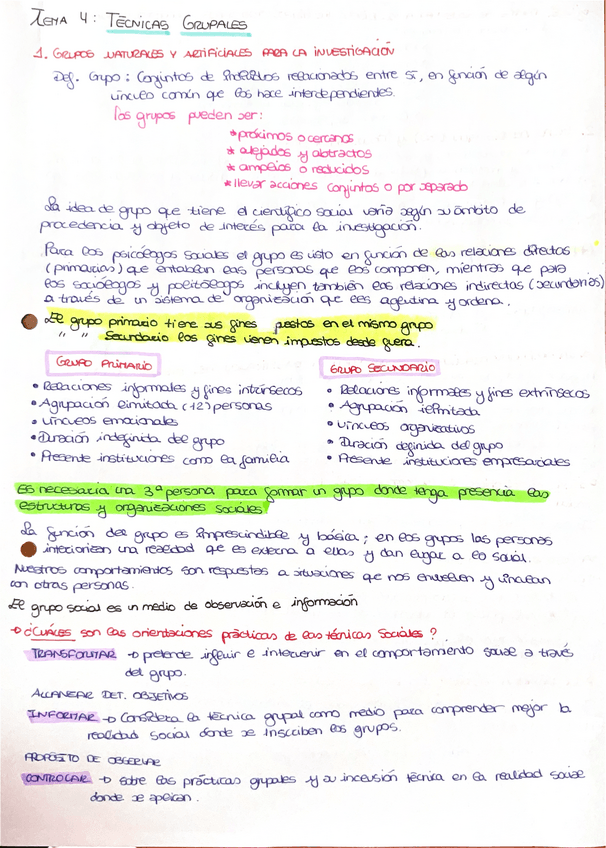 TEMA 4: TÉCNICAS GRUPALES
1. GRUPOS NATURALES Y ARTIFICIALES PARA LA INVESTIGACIÓN
Def. Grupo: Conjuntos de individuos relacionados entre sí, en función de algún
vínculo común que los hace interdependientes.
los grupos pueden ser:
* próximos o cercanos
* alejados y abstractos
* amplios o reducidos
* llevar acciones conjuntos o por separado
La idea de grupo que tiene el científico social varía según su ámbito de
procedencia y objeto de interés para la investigación.
Para los psicólogos sociales el grupo es visto en función de las relaciones directas
(primarias) que entablan las personas que los componen, mientras que para
los sociólogos y politólogos incluyen también las relaciones indirectas (secundarias)
a través de un sistema de organización que les aglutina y ordena.
El grupo primario tiene sus fines puestos en el mismo grupo
" " Secundario los fines vienen impuestos desde fuera.
GRUPO PRIMARIO
• Relaciones informales y fines intrínsecos
• Agrupación limitada (12) personas
• vínculos emocionales
• Duración indefinida del grupo
• Presente instituciones como la familia
GRUPO SECUNDARIO
• Relaciones informales y fines extrínsecos
• Agrupación ilimitada
• vínculos organizativos
• Duración definida del grupo
• Presente instituciones empresariales
Es necesaria una 3ª persona para formar un grupo donde tenga presencia las
estructuras y organizaciones sociales
La función del grupo es imprescindible y básica; en los grupos las personas
interiorizan una realidad que es externa a ellas y dan lugar a lo social.
Nuestros comportamientos son respuestas a situaciones que nos envuelven y vinculan
con otras personas.
El grupo social es un medio de observación e información
→ ¿CUÁLES son las orientaciones prácticas de las técnicas Sociales?
TRANSFORMAR → pretende influir e intervenir en el comportamiento social a través
del grupo.
ALCANZAR DET. OBJETIVOS
INFORMAR → Considera la técnica grupal como medio para comprender mejor la
realidad social donde se inscriben los grupos.
PROPÓSITO DE OBSERVAR
CONTROLAR → sobre las prácticas grupales y su inclusión técnica en la realidad social
donde se aplican.